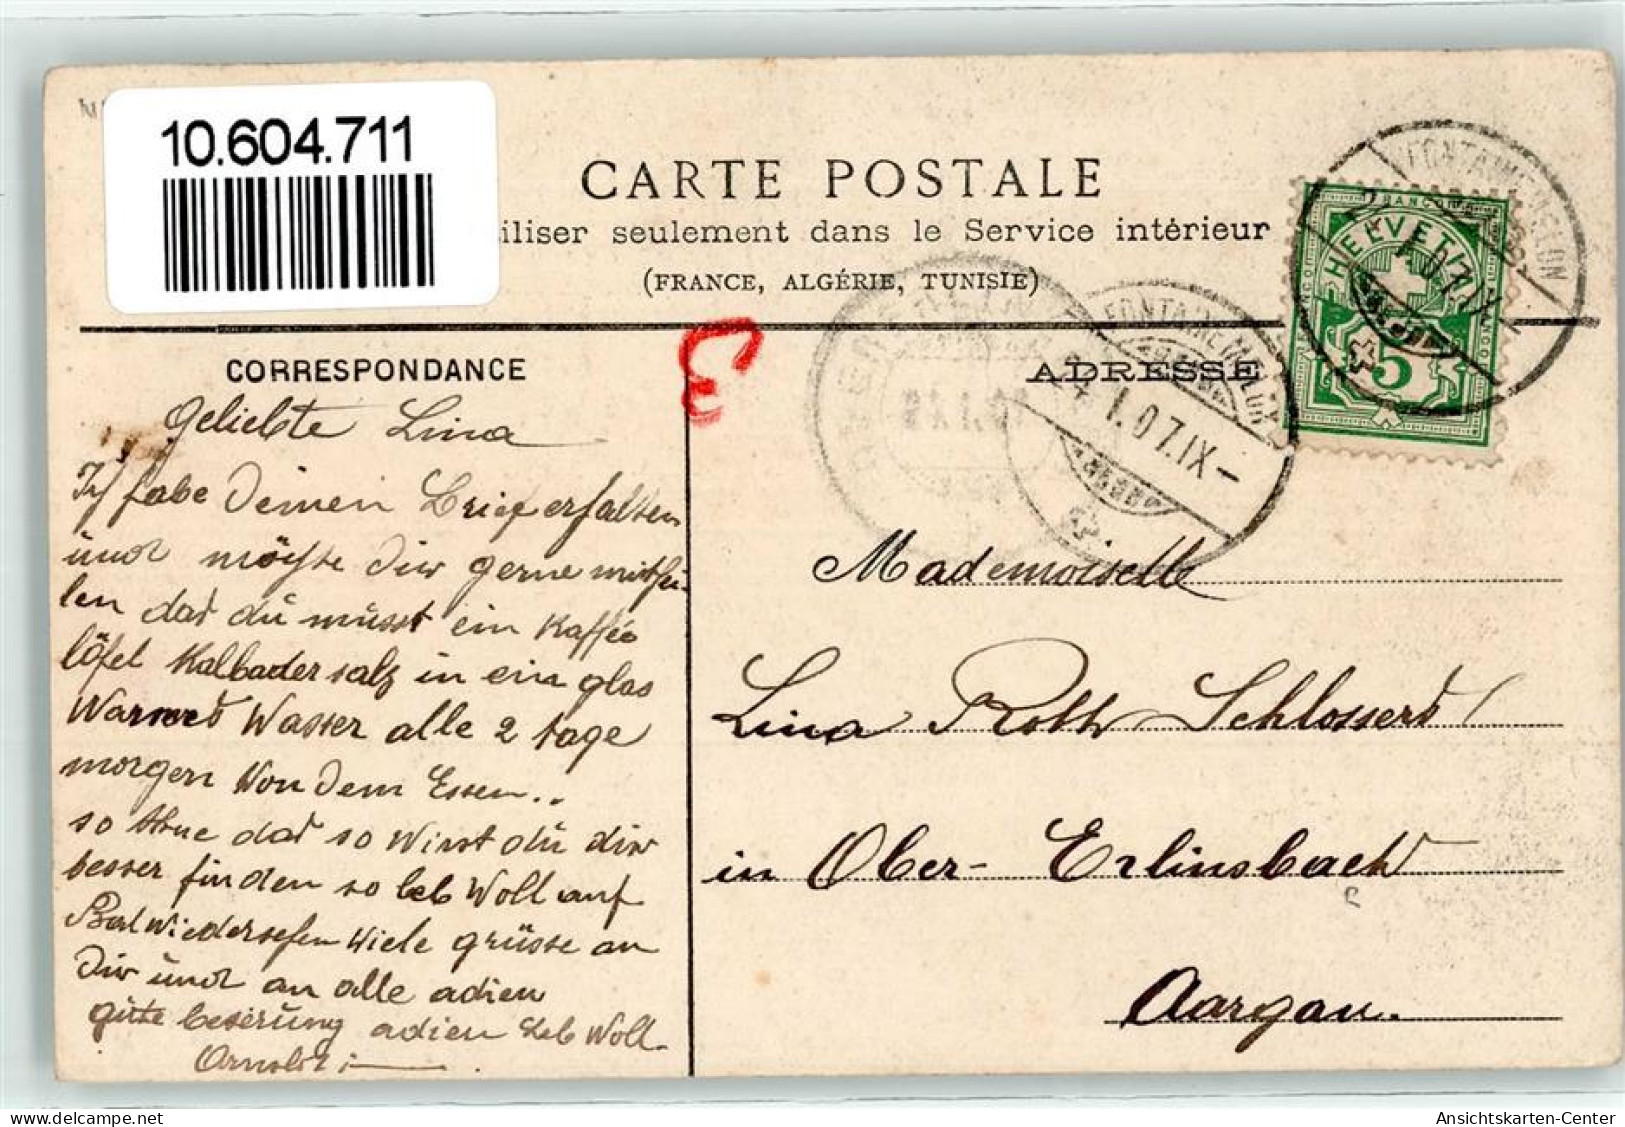 10.604.711
CARTE POSTALE
iliser seulement dans le Service intérieur
(FRANCE, ALGÉRIE, TUNISIE)
CORRESPONDANCE
ADRESSE
FRANCO
HELVETIA
5
FONTAINEMELON
1.07.IX
FONTAINEMELON
1.07.IX-
Geliebte Lina
Ich habe Deinen Brief erhalten
und möchte Dir gerne mitei
len das du müsst ein Kaffée
löfel Kalbader salz in ein glas
Warmes Wasser alle 2 tage
morgen Von Dem Essen..
so thue das so Wirst du dir
besser finden so leb Woll auf
Bald wiedersehen Viele grüsse an
Dir und an alle adien
gute beserung adien Leb Woll.
Arnold
Mademoiselle
Lina Roth Schlossers
in Ober-Erlinsbach
Aargau.
Ansichtskarten-Center